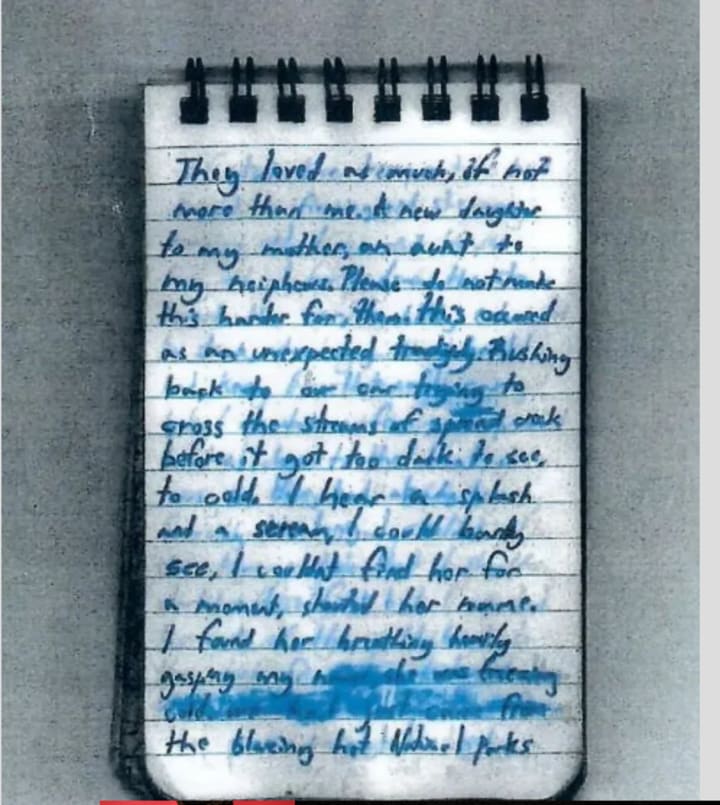 They loved as much, if not
more than me. A new daughter
to my mother, an aunt to
my neiphews. Please do not make
this harder for them. this occured
as an unexpected tradgedy. Rushing
back to our car trying to
cross the streams of spread creek
before it got too dark to see,
to cold. I hear a splash
and a scream, I could barely
see, I couldnt find her for
a moment, shouted her name.
I found her breathing heavily
gasping any she was freezing
cold we had just come from
the blazing hot National parks